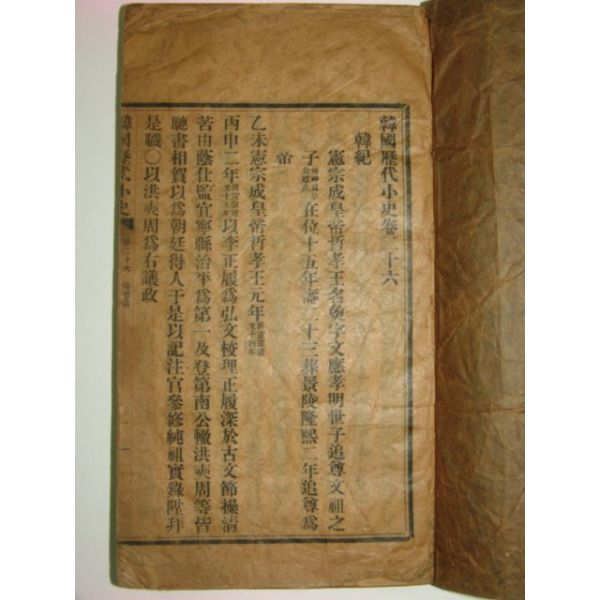 韓國歷代小史卷二十六
韓紀
憲宗成皇帝哲孝王名奐字文應孝明世子追尊文祖之
子在位十五年壽二十三葬景陵隆熙二年追尊爲
帝
乙未憲宗成皇帝哲孝王元年
丙申二年以李正履爲弘文校理正履深於古文節操清
苦由蔭仕監宜寧縣治平爲第一及登第南公轍洪奭周等皆
馳書相賀以爲朝廷得人于是以記注官參修純祖實錄陞拜
是職〇以洪奭周爲右議政
韓國歷代小史